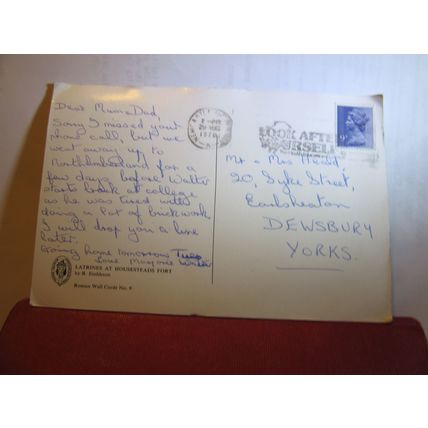 Dear Mum & Dad,
Sorry I missed your
phone call, but we
went away up to
Northumberland for a
few days before Walter
starts back at college
as he was tired with
doing a lot of brickwork
I will drop you a line
later.
Going home tomorrow Tues
Love Marjorie Walter
LATRINES AT HOUSESTEADS FORT
by R. Embleton
Roman Wall Cards No. 8
29 AUG
1978
LOOK AFTER
YOURSELF
9p
Mr & Mrs Head,
20, Syke Street,
Earlsheaton
DEWSBURY
YORKS.